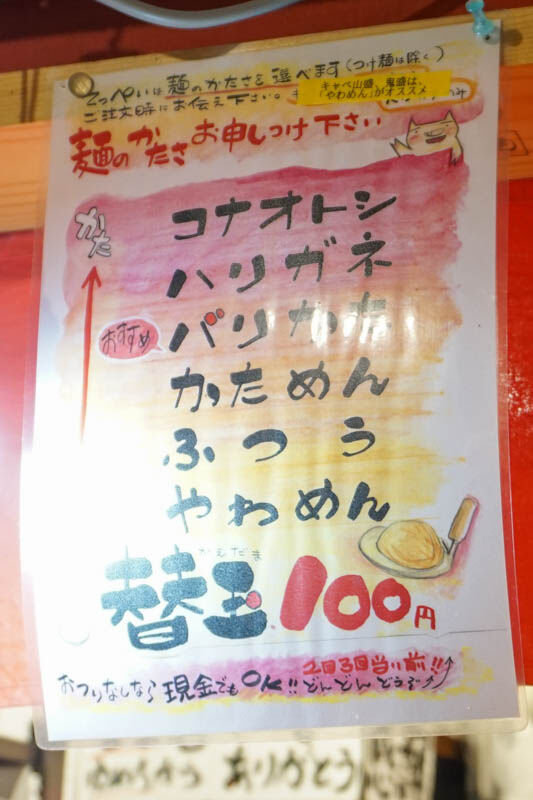 てっぺいは麺のかたさを選べます(つけ麺は除く)
ご注文時にお伝え下さい。
キャベ山盛、鬼盛は、
「やわめん」がオススメ
麺のかたさお申しつけ下さい
かた
コナオトシ
ハリガネ
おすすめ
バリかた
かためん
ふつう
やわめん
かえだま
替玉100円
2回3回当り前!!
おつりなしなら現金でもOK!!どんどんどうぞ
ありがとう